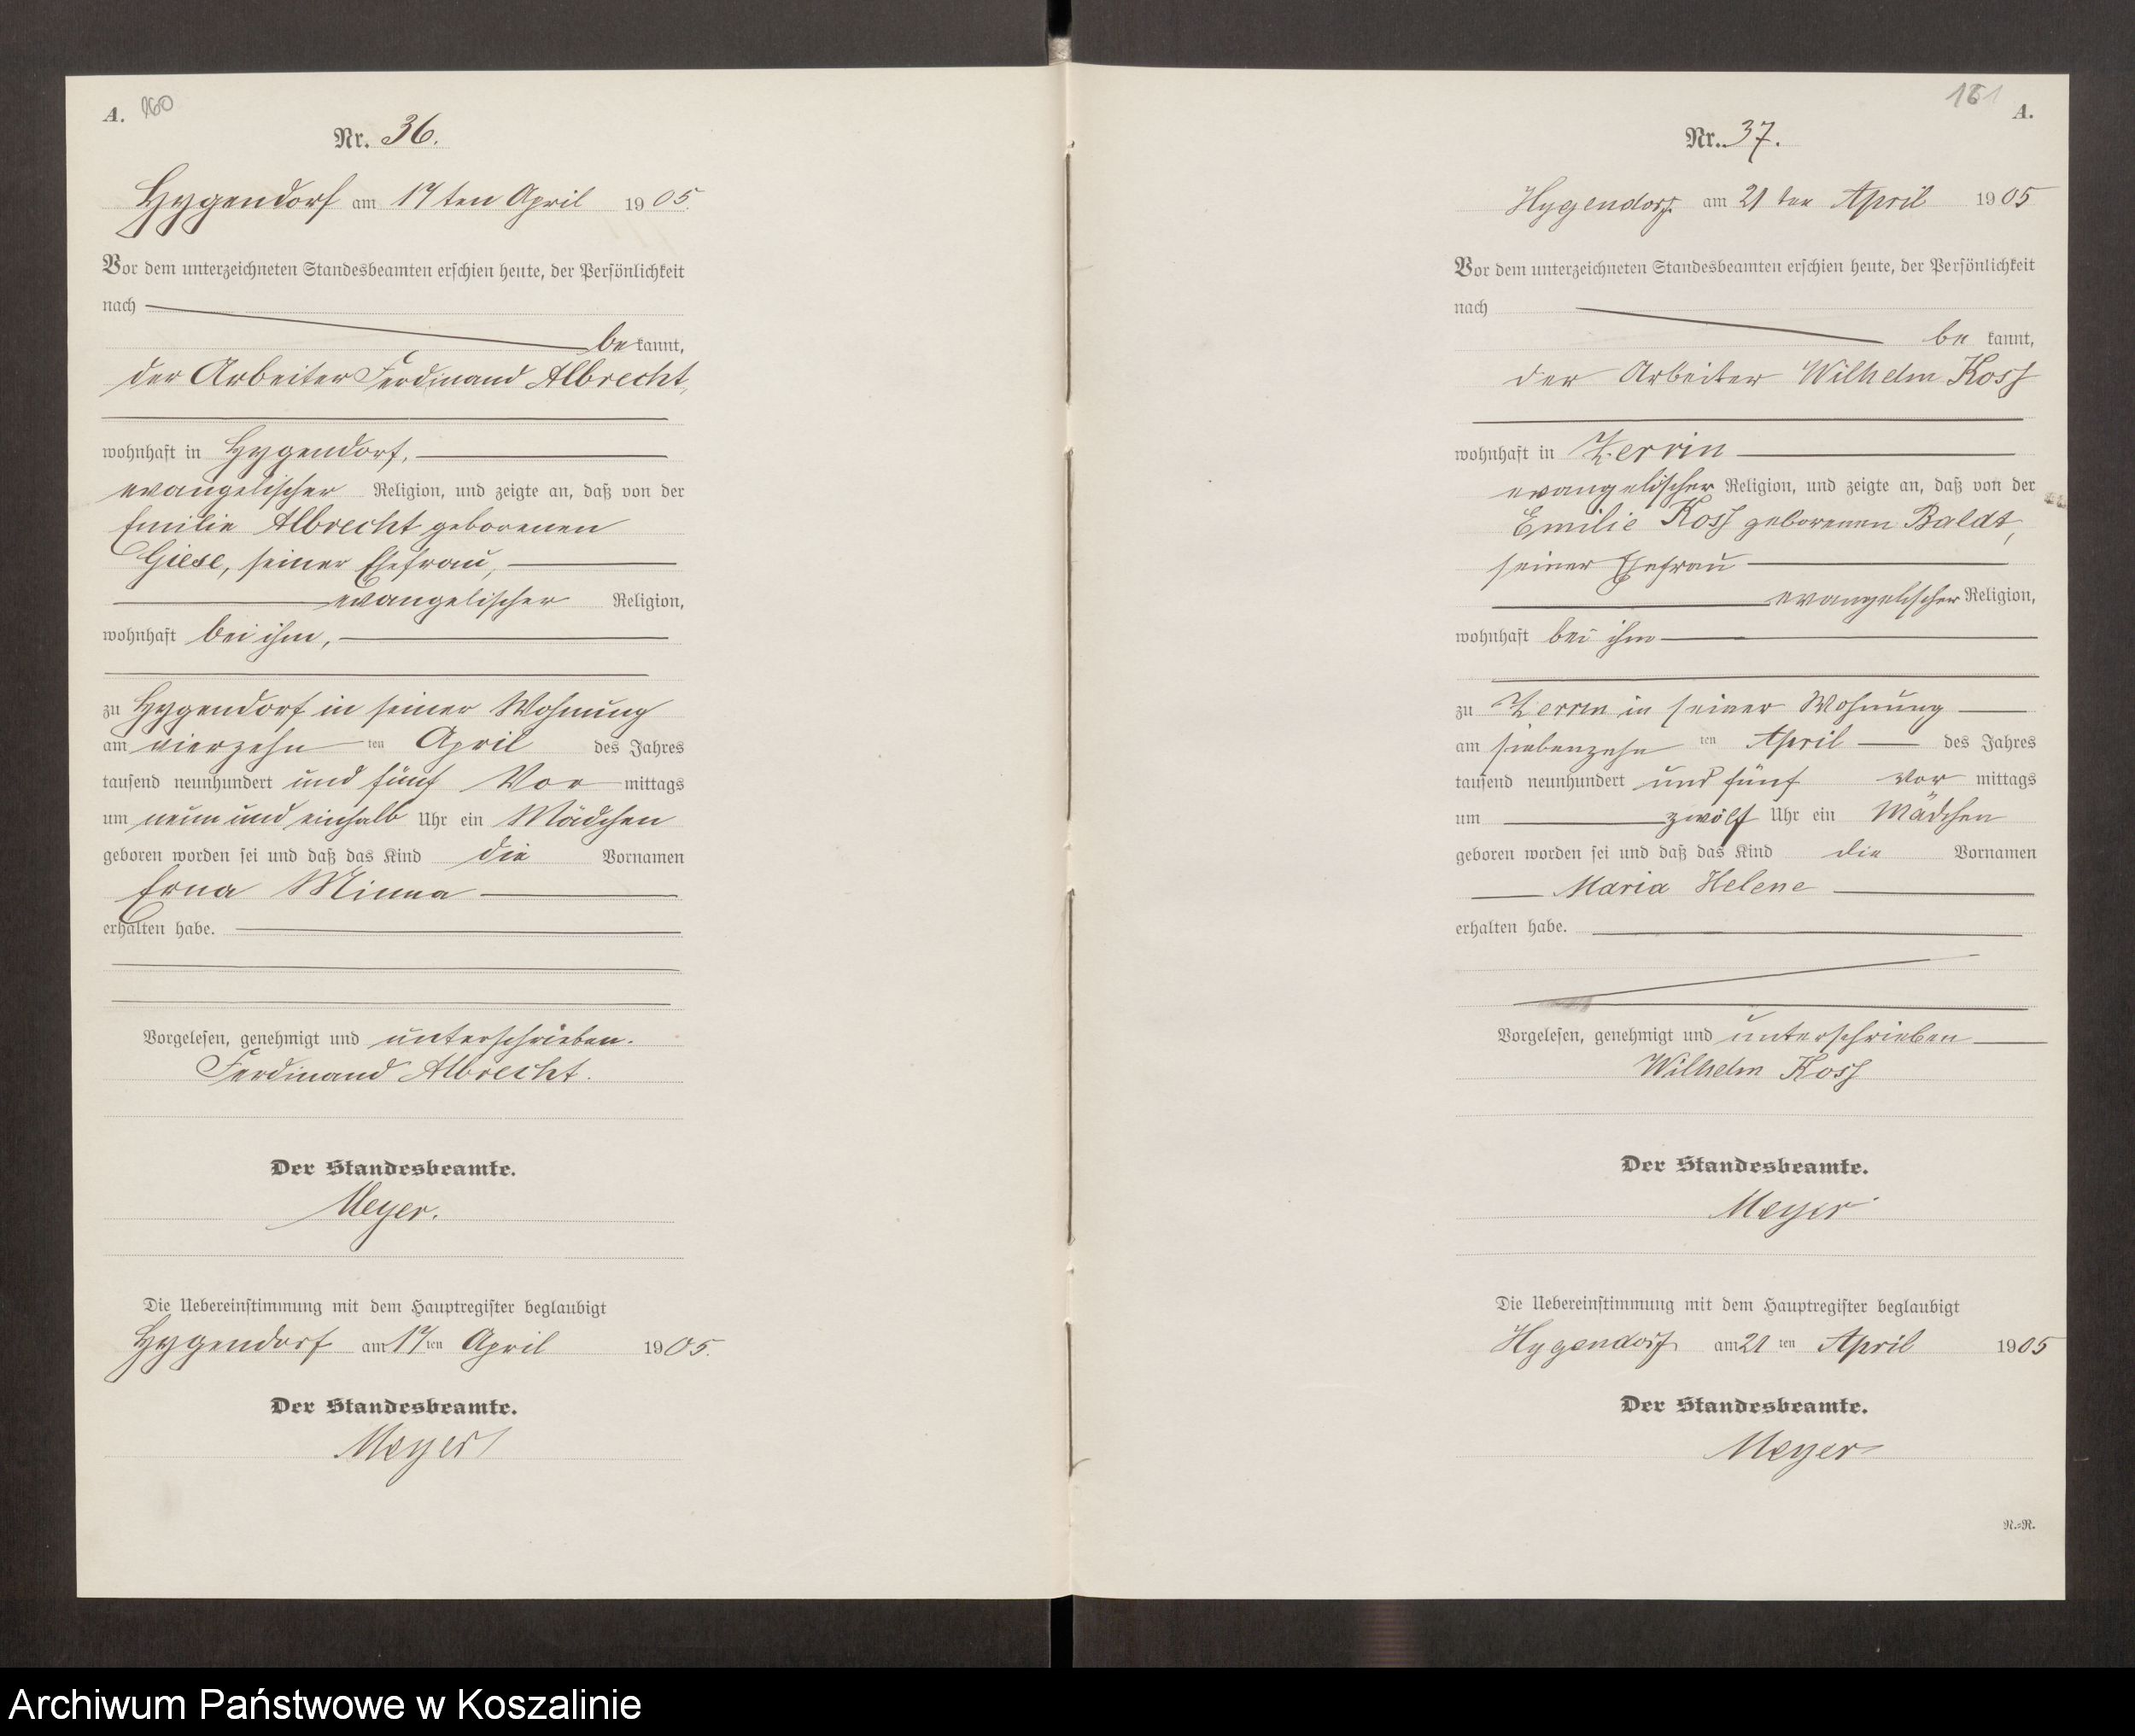 A. 160
Nr. 36.
Hygendorf am 17ten April 1905.
Vor dem unterzeichneten Standesbeamten erschien heute, der Persönlichkeit
nach
bekannt,
der Arbeiter Ferdinand Albrecht,
wohnhaft in Hygendorf,
evangelischer Religion, und zeigte an, daß von der
Emilie Albrecht geborenen
Giese, seiner Ehefrau,
evangelischer Religion,
wohnhaft bei ihm,
zu Hygendorf in seiner Wohnung
am vierzehn ten April des Jahres
tausend neunhundert und fünf Vor mittags
um neun und einhalb Uhr ein Mädchen
geboren worden sei und daß das Kind die Vornamen
Erna Minna
erhalten habe.
Vorgelesen, genehmigt und unterschrieben.
Ferdinand Albrecht.
Der Standesbeamte.
Meyer.
Die Uebereinstimmung mit dem Hauptregister beglaubigt
Hygendorf am 17ten April 1905.
Der Standesbeamte.
Meyer
161 A.
Nr. 37.
Hygendorf am 21ten April 1905
Vor dem unterzeichneten Standesbeamten erschien heute, der Persönlichkeit
nach
be kannt,
der Arbeiter Wilhelm Koss
wohnhaft in Zerrin
evangelischer Religion, und zeigte an, daß von der
Emilie Koss geborenen Baldt,
seiner Ehefrau
evangelischer Religion,
wohnhaft bei ihm
zu Zerrin in seiner Wohnung
am siebenzehn ten April des Jahres
tausend neunhundert und fünf vor mittags
um zwölf Uhr ein Mädchen
geboren worden sei und daß das Kind die Vornamen
Maria Helene
erhalten habe.
Vorgelesen, genehmigt und unterschrieben
Wilhelm Koss
Der Standesbeamte.
Meyer
Die Uebereinstimmung mit dem Hauptregister beglaubigt
Hygendorf am 21 ten April 1905
Der Standesbeamte.
Meyer
N.=R.
Archiwum Państwowe w Koszalinie